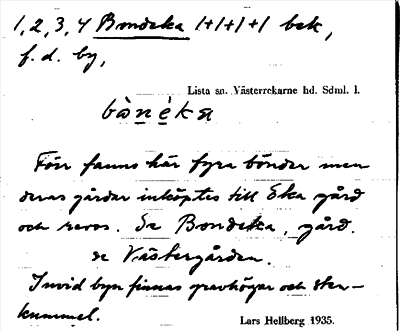 1, 2, 3, 4 Bondeka 1+1+1+1 bek,
f. d. by,
Lista an. Västerrekarne hd. Sdml. l.
bònéka
Förr fanns här fyra bönder men
deras gårdar inköptes till Eka gård
och revos. Se Bondeka, gård.
se Västergården.
Invid byn finnas gravhögar och sten-
kummel.
Lars Hellberg 1935.